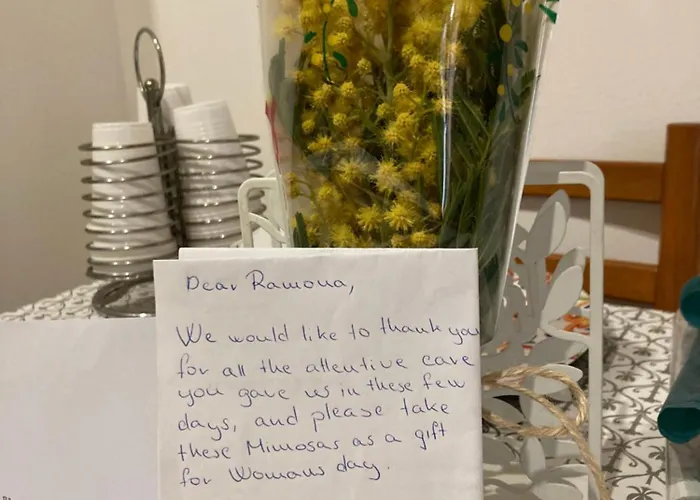 Dear Ramona,
We would like to thank you
for all the attentive care
you gave us in these few
days, and please take
these Mimosas as a gift
for Womans day.